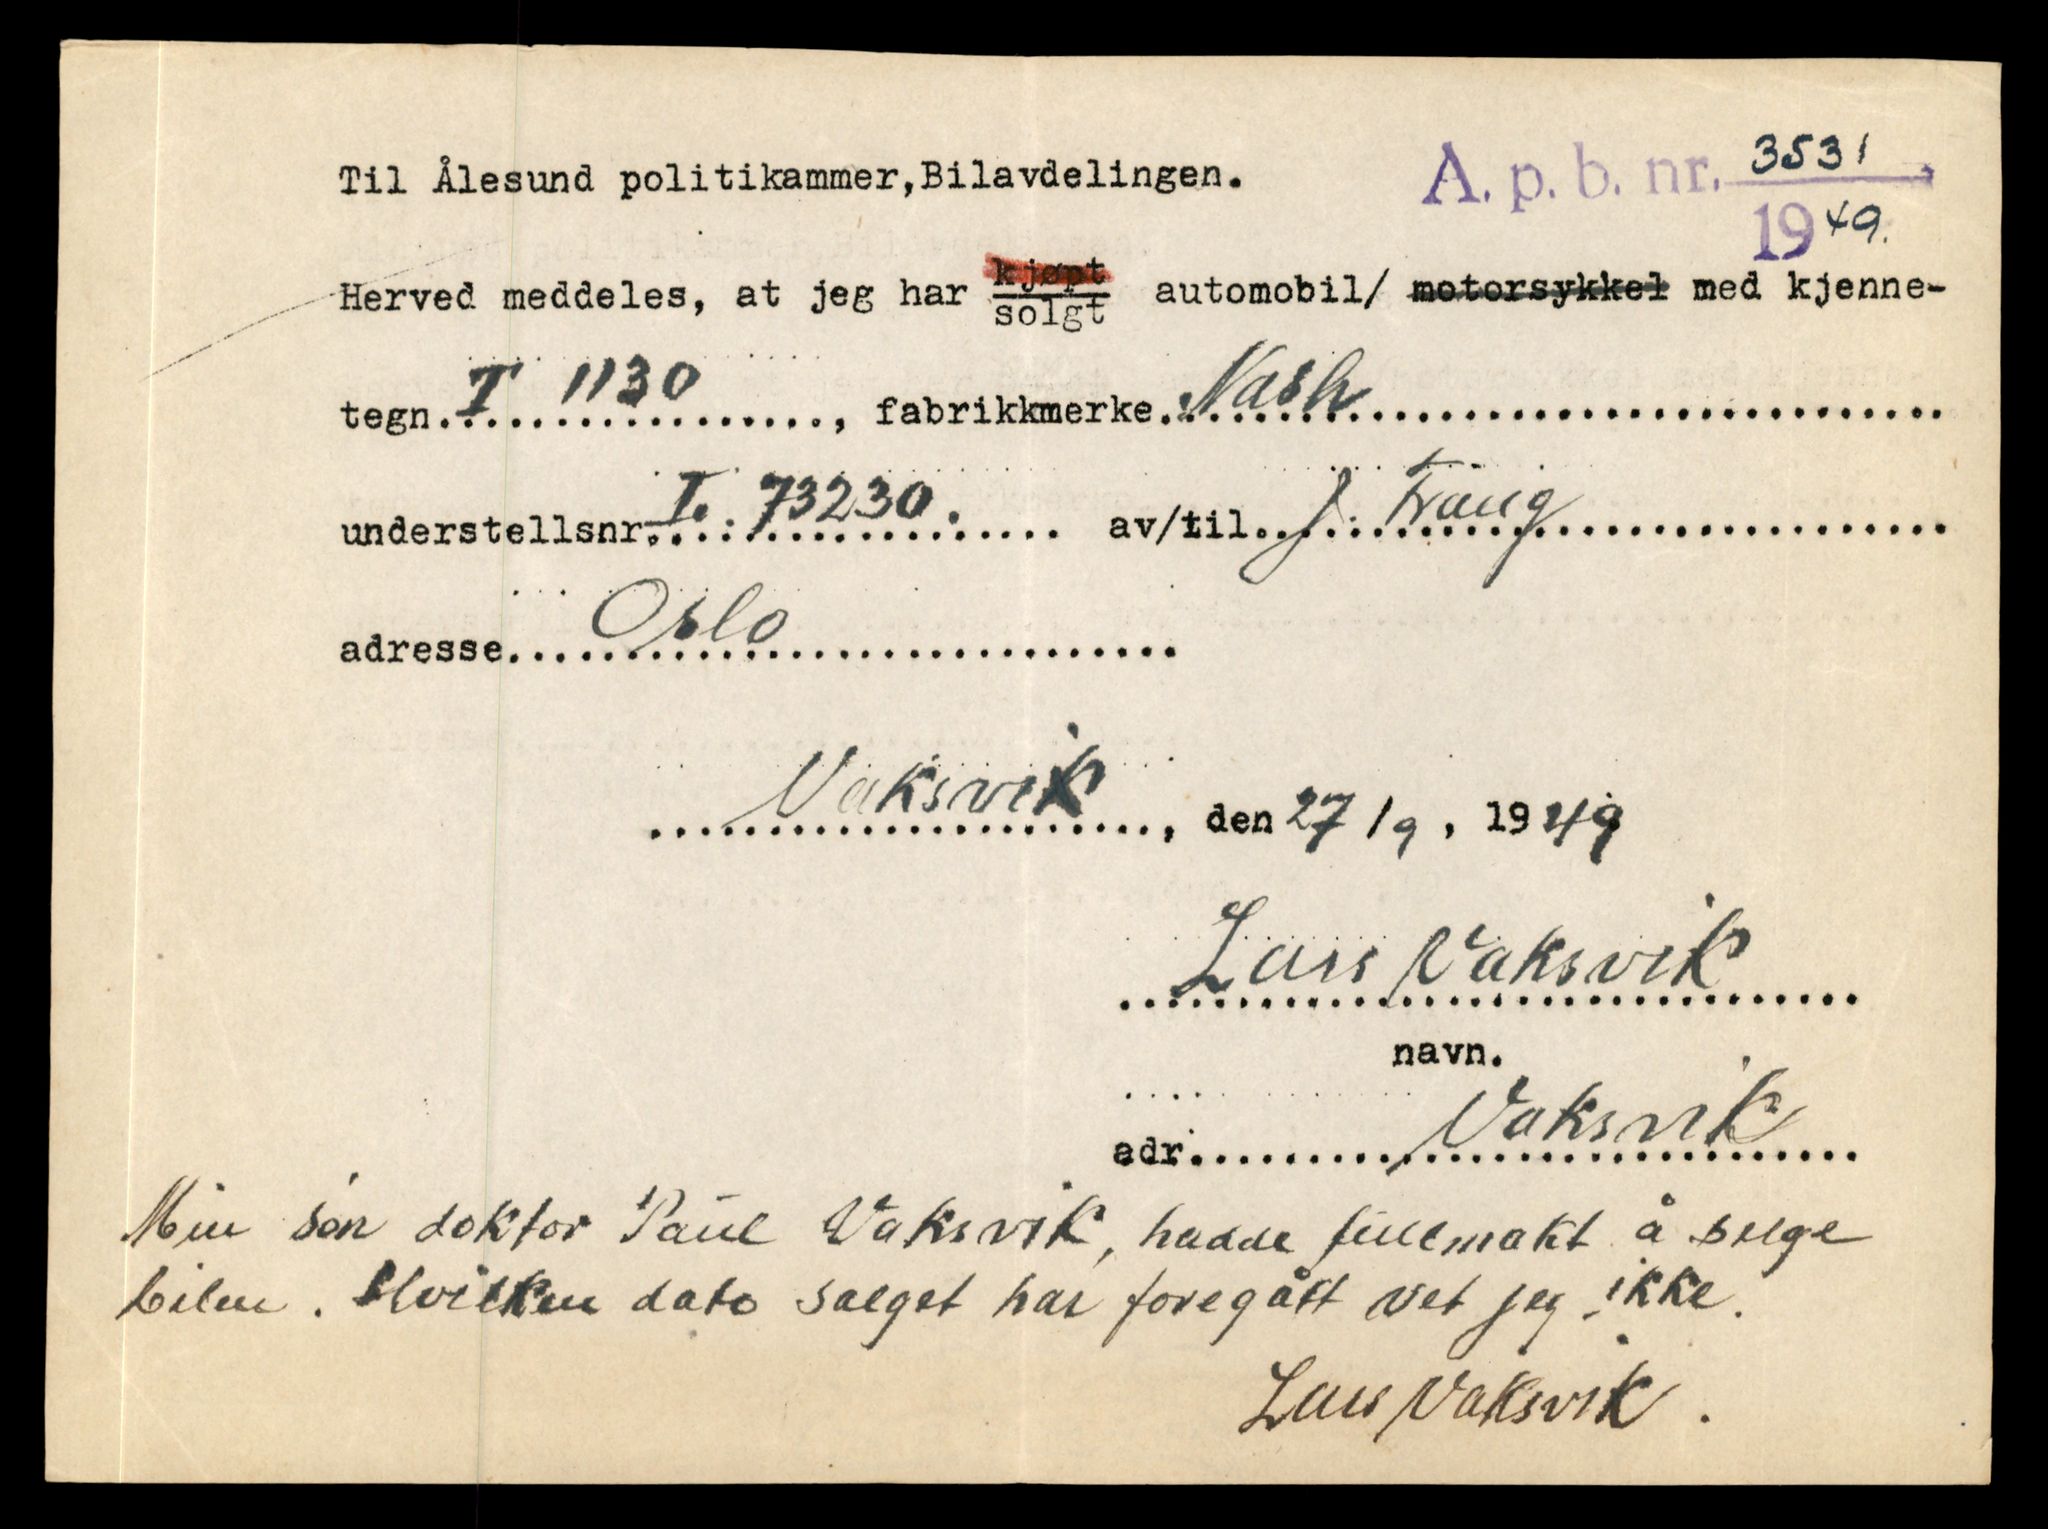 Til Ålesund politikammer,Bilavdelingen.
A. p. b. nr. 3531
1949.
Herved meddeles, at jeg har kjøpt/solgt automobil/ motorsykkel med kjenne-
tegn. T 1130 ................, fabrikkmerke. Nash ................
understellsnr. T. 73230. ................ av/til. J. Traug ................
adresse. Oslo ................
Vaksvik ................, den 27/9, 1949
Lars Vaksvik
navn.
adr. Vaksvik ................
Min søn doktor Paul Vaksvik, hadde fullmakt å selge
bilen. Hvilken dato salget har foregått vet jeg ikke.
Lars Vaksvik.